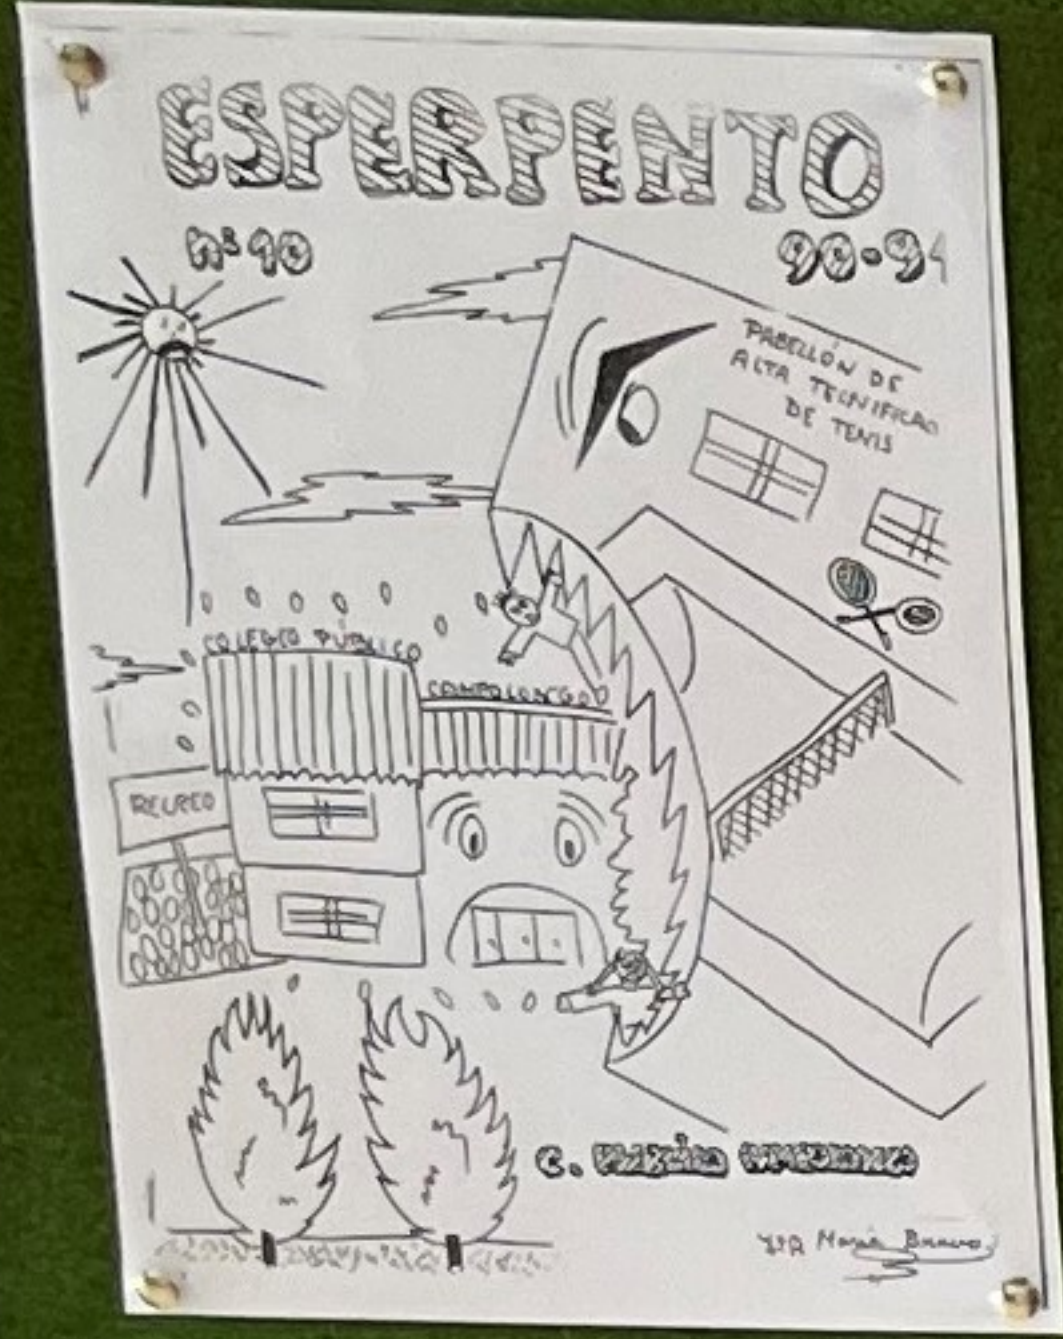 ESPERPENTO
nº 10
90-91
PABELLÓN DE
ALTA TECNIFICAO
DE TENIS
COLEGIO PÚBLICO
CAMPOLONGO
RECREO
C.
María